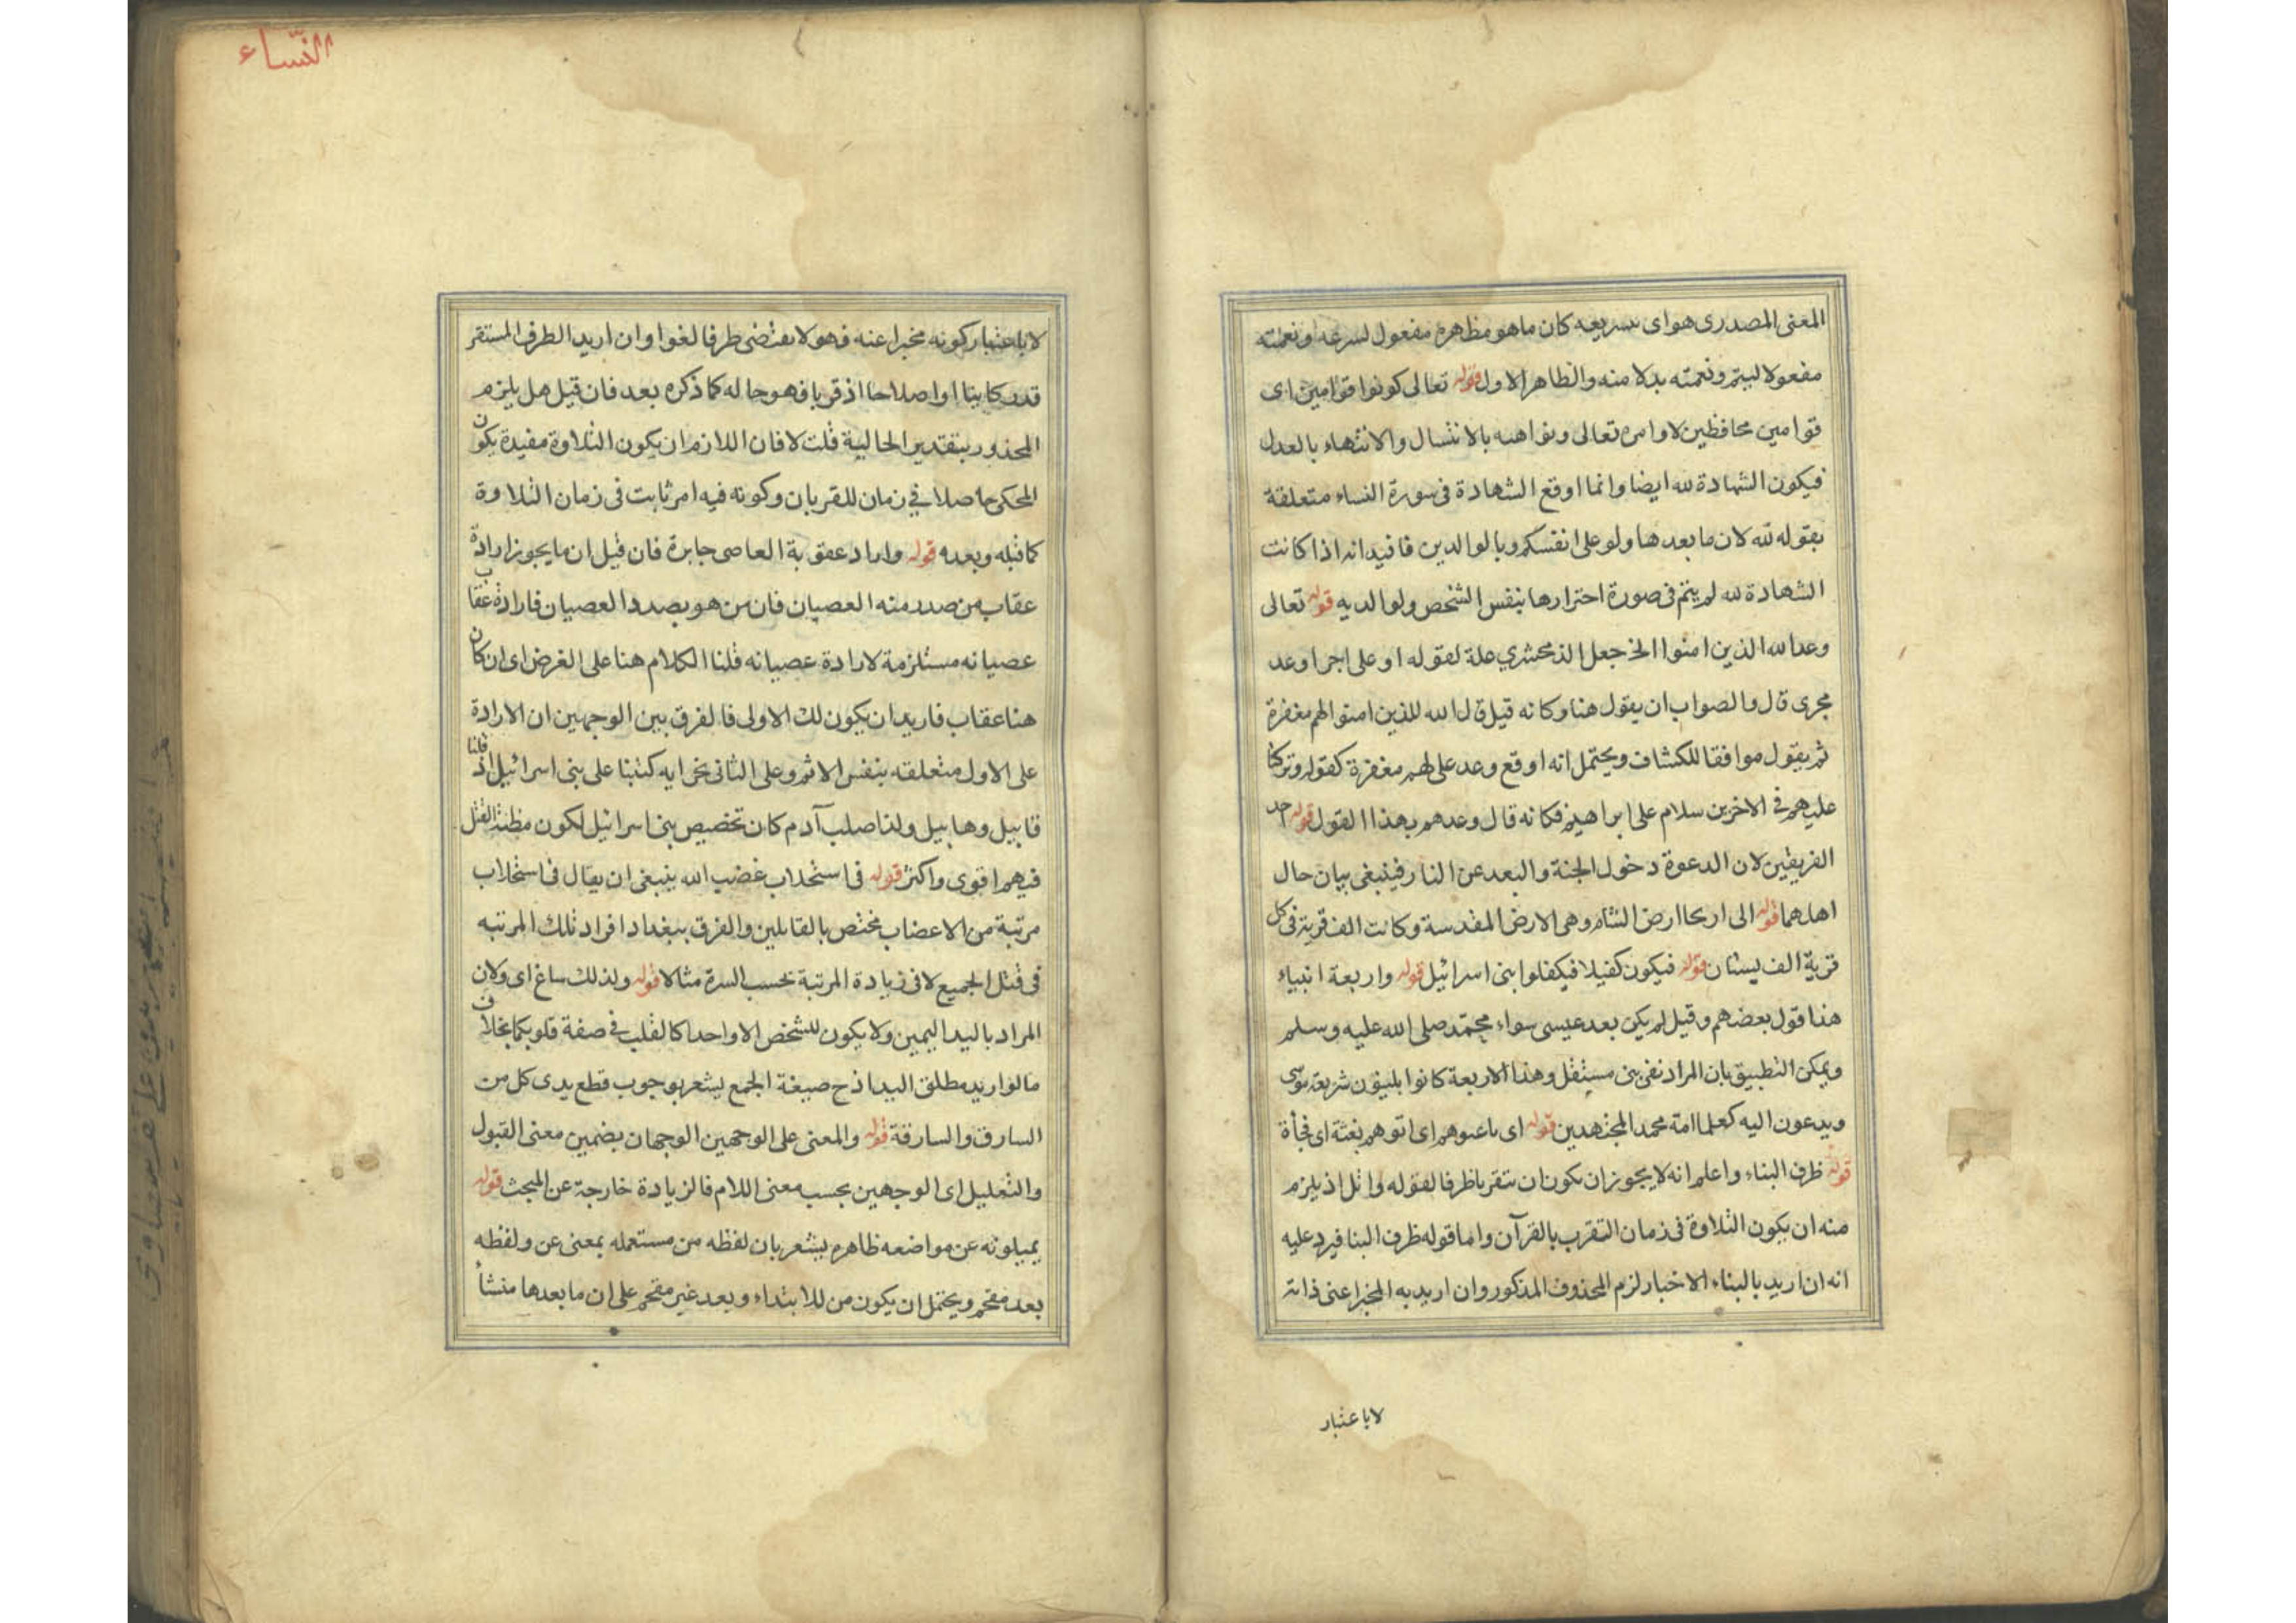 المعنى المصدرى هو اى بسريعه كان ما هو مظاهره مفعول لسرعه او نعمته
مفعولا ليتم ونعمته بدلا منه والظاهر الاول قوله تعالى كونوا قوامين اى
قوامين محافظين لاوامره تعالى ونواهيه بالامتثال والانتهاء بالعدل
فيكون الشهادة لله ايضا وانما اوقع الشهادة فى سورة النساء متعلقة
بقوله لله لان ما بعدها ولو على انفسكم وبالوالدين فافيد انه اذا كانت
الشهادة لله لم يتم فى صورة احترارها بنفس الشخص ولوالديه قوله تعالى
وعد الله الذين امنوا الخ جعل الزمخشري علة لقوله او على اجرا وعد
مجرى قال والصواب ان يقول هنا وكانه قيل قال الله للذين امنوا لهم مغفرة
ثم يقول موافقا للكشاف ويحتمل انه اوقع وعد على لهم مغفرة كقوله وتركنا
عليهم فى الاخرين سلام على ابراهيم فكانه قال وعدهم بهذا القول قوله احد
الفريقين لان الدعوة دخول الجنة والبعد عن النار فينبغى بيان حال
اهلهما قوله الى اريحا ارض الشام وهى الارض المقدسة وكانت الف قرية فى كل
قرية الف بستان قوله فيكون كفيلا فيكفلوا بنى اسرائيل قوله واربعة انبياء
هذا قول بعضهم وقيل لم يكن بعد عيسى سواء محمد صلى الله عليه وسلم
ويمكن التطبيق بان المراد نفى بنى مستقل وهذا الاربعة كانوا يلبيون شريعة موسى
ويدعون اليه كعلما امة محمد المجتهدين قوله اى باعبوهم اى اتوهم بغتة اى فجأة
قوله ظرف البناء واعلم انه لا يجوز ان يكون ان يتقربا ظرفا لقوله واتل اذ يلزم
منه ان يكون التلاوة فى زمان التقرب بالقرآن واما قوله ظرف البنا فيرد عليه
انه ان اريد بالبناء الاخبار لزم المحذوف المذكور وان اريد به المخبر اعنى ذاته
لا باعتبار
النّساء
لا باعتبار كونه مخبرا عنه فهو لا يقتضى ظرفا لغوا وان اريد الظرف المستقر
قدر كاينا او اصلا حا اذ قربا فهو حا له كما ذكره بعد فان قيل هل يلزم
المحذور بتقدير الحالية قلت لا فان اللازم ان يكون التلاوة مفيدة يكون
المحكى حاصلا فى زمان للقربان وكونه فيه امر ثابت فى زمان التلاوة
كما قبله وبعده قوله واراد عقوبة العاصى جابرة فان قيل ان ما يجوز ارادة
عقاب من صدر منه العصيان فان من هو بصدد العصيان فارادة عقاب
عصيانه مستلزمة لارادة عصيانه قلنا الكلام هنا على الفرض اى ان كان
هنا عقاب فاريد ان يكون لك الاولى فالفرق بين الوجهين ان الارادة
على الاول متعلقه بنفس الاثم وعلى الثانى بجزايه كتبنا على بنى اسرائيل اذ قلنا
قابيل وهابيل ولدا صلب آدم كان تخصيص بنى اسرائيل لكون مظنة القتل
فيهم اقوى واكثر قوله فى استجلاب غضب الله ينبغى ان يقال فى استجلاب
مرتبة من الاعضاب مختص بالقابلين والفرق ببغداد افراد تلك المرتبه
فى قتل الجميع لا فى زيادة المرتبة بحسب السرة مثالا قوله ولذلك ساغ اى ولان
المراد باليد اليمين ولا يكون للشخص الا واحدا كالقلب فى صفة قلوبكما بخلاف
ما لو اريد مطلق اليد اذ ح صيغة الجمع يشعر بوجوب قطع يدى كل من
السارق والسارقة قوله والمعنى على الوجهين الوجهان بضمين معنى القبول
والتعليل اى الوجهين بحسب معنى اللام فالزيادة خارجة عن المبحث قوله
يميلونه عن مواضعه ظاهره يشعر بان لفظه من مستعمله بمعنى عن ولفظه
بعد مقحم ويحتمل ان يكون من للابتداء وبعد غير مقحم على ان ما بعدها منشأ